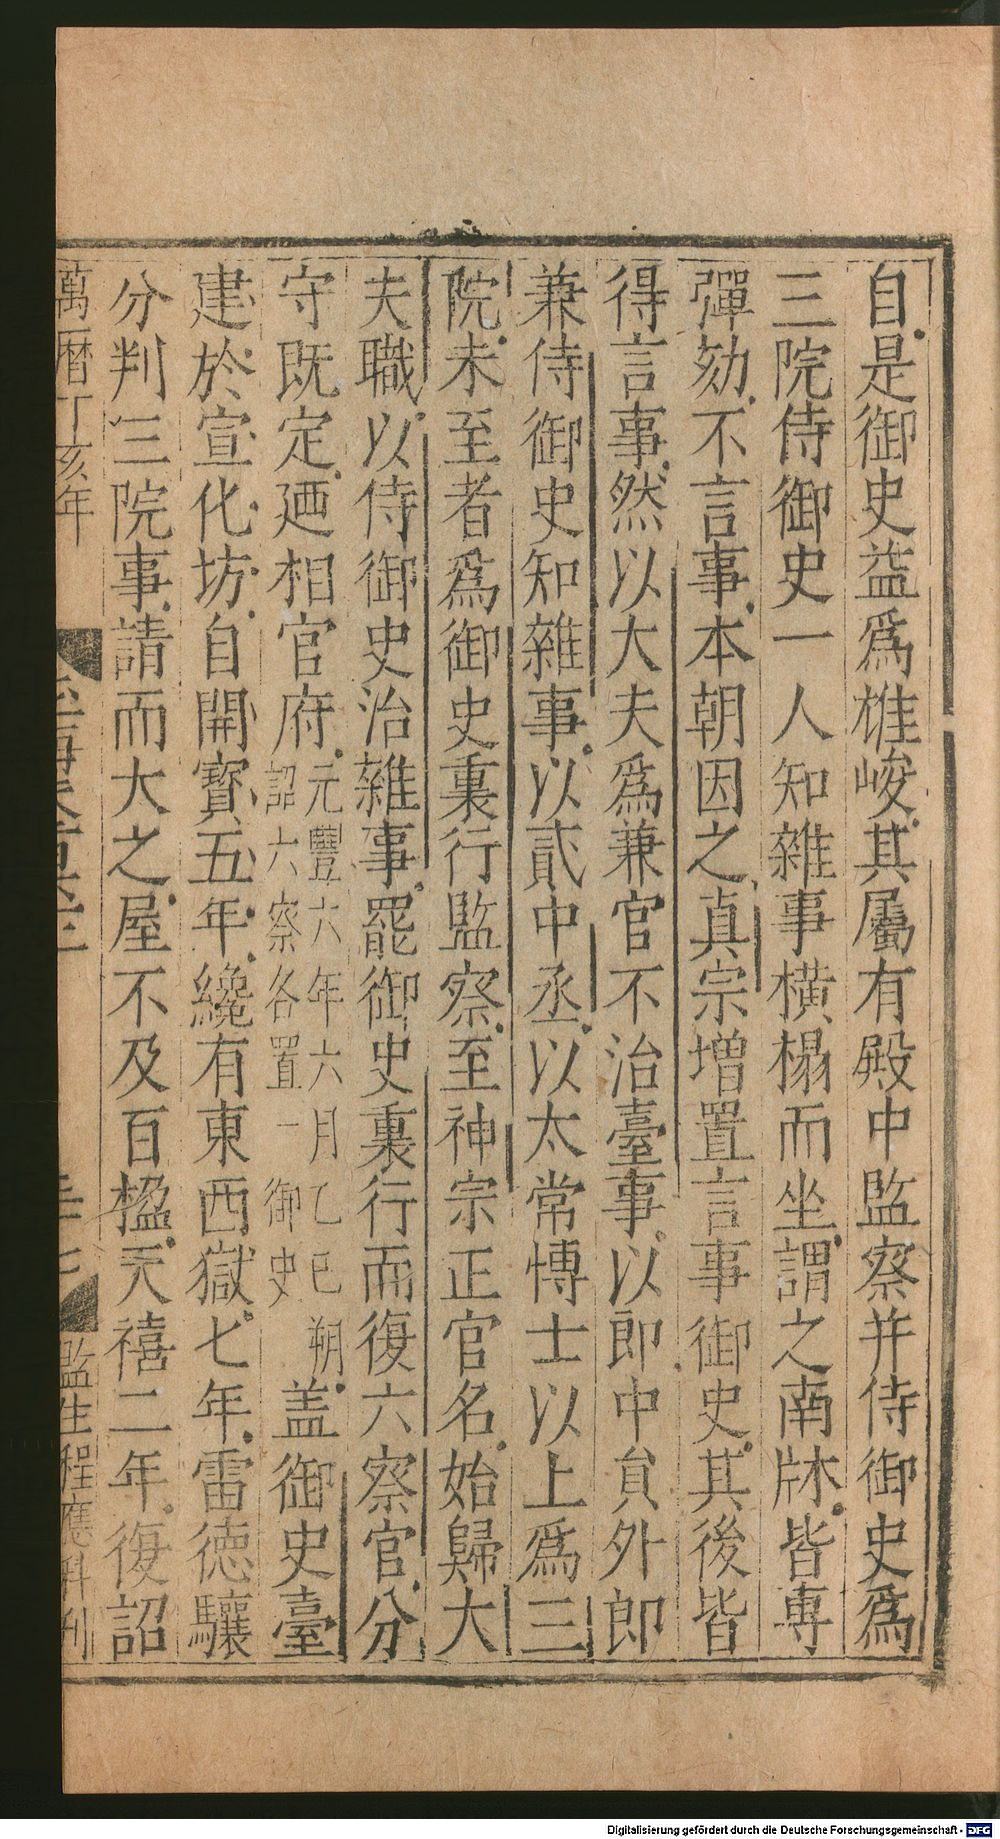 自是御史益爲雄峻其屬有殿中監察并侍御史爲
三院侍御史一人知雜事橫榻而坐謂之南牀皆專
彈劾不言事本朝因之真宗增置言事御史其後皆
得言事然以大夫爲兼官不治臺事以郎中貟外郎
兼侍御史知雜事以貳中丞以太常博士以上爲三
院未至者爲御史裏行監察至神宗正官名始歸大
夫職以侍御史治雜事罷御史裏行而復六察官分
守既定廼相官府
元豐六年六月乙巳朔
詔六察各置一御史
盖御史臺
建於宣化坊自開寳五年纔有東西獄七年雷德驤
分判三院事請而大之屋不及百楹天禧二年復詔
萬曆丁亥年
監生程應科刊
Digitalisierung gefördert durch die Deutsche Forschungsgemeinschaft - DFG